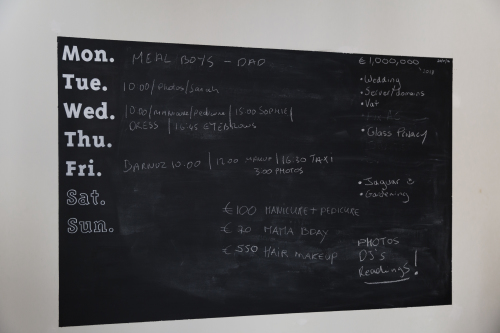 Mon. MEAL BOYS - DAD
Tue. 10.00/Photos/Sarah
Wed. 10.00/manicure/Pedicure | 15.00 SOPHIE/
DRESS | 16.45 EYEBROWS
Thu.
Fri. 10.00 | 12.00 MAKEUP | 16.30 TAXI
3.00 PHOTOS
Sat.
Sun.
€100 MANICURE + PEDICURE
€ 70 MAMA BDAY
€ 550 HAIR MAKEUP
€ 1,000,000
2018
• Wedding
• Server/domains
• Vat
• Glass Privacy
• Jaguar
• Gardening
PHOTOS
DJ'S
Readings !